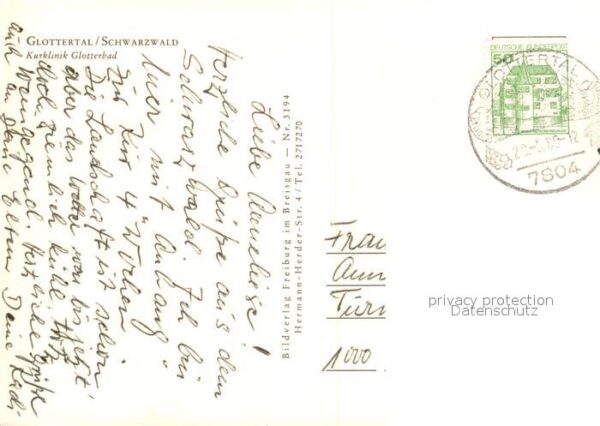 GLOTTERTAL/SCHWARZWALD
Kurklinik Glotterbad
Liebe Anneliese!
Herzliche Grüße aus dem
Schwarzwald. Ich bin
hier mit Anhang
zur Kur 4 Wochen.
Die Landschaft ist schön
aber das Wetter war bis jetzt
doch ziemlich kühl
auch
an Deine Eltern Deine
Bildverlag Freiburg im Breisgau — Nr. 3194
Hermann-Herder-Str. 4 / Tel. 2717270
DEUTSCHE BUNDESPOST
50
GLOTTERTAL
7804
Frau
Ann
Tür
1000
privacy protection
Datenschutz